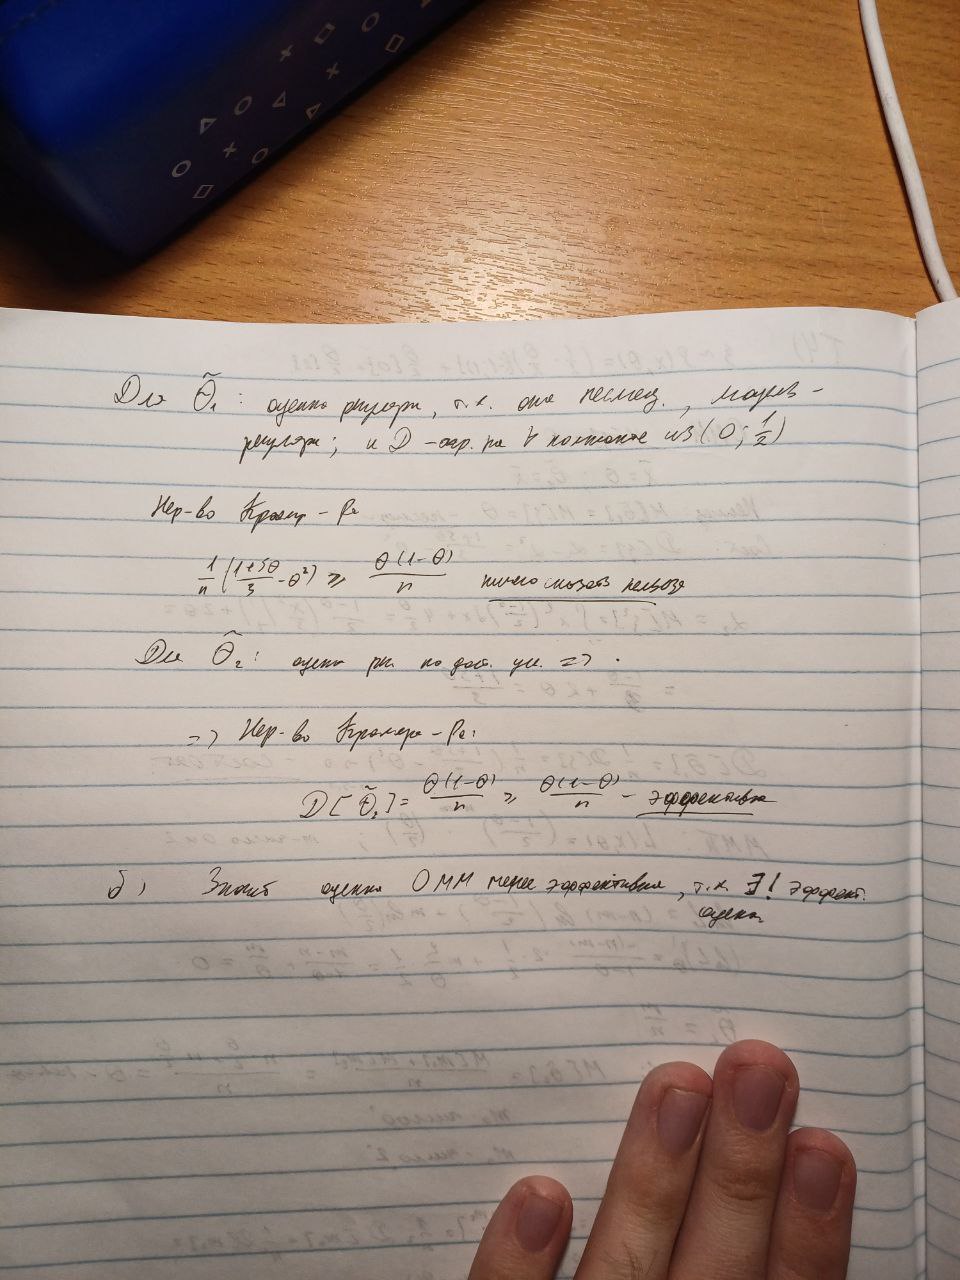 Для θ̃₁: оценка регулярн, т.к. она несмещ., модель -
регулярн; и D - огр. на ∀ компакте из (0; 1/2)
Нер-во Крамер - Ра
1/n (1+5θ/3 - θ²) ≥ θ(1-θ)/n ничего сказать нельзя
Для θ̃₂: оценка рег. по дост. усл. =>
=> Нер-во Крамера - Ра:
D[θ̃₂] = θ(1-θ)/n ≥ θ(1-θ)/n - эффективна
б) Значит оценка ОММ менее эффективна, т.к. ∃! эффект.
оценка